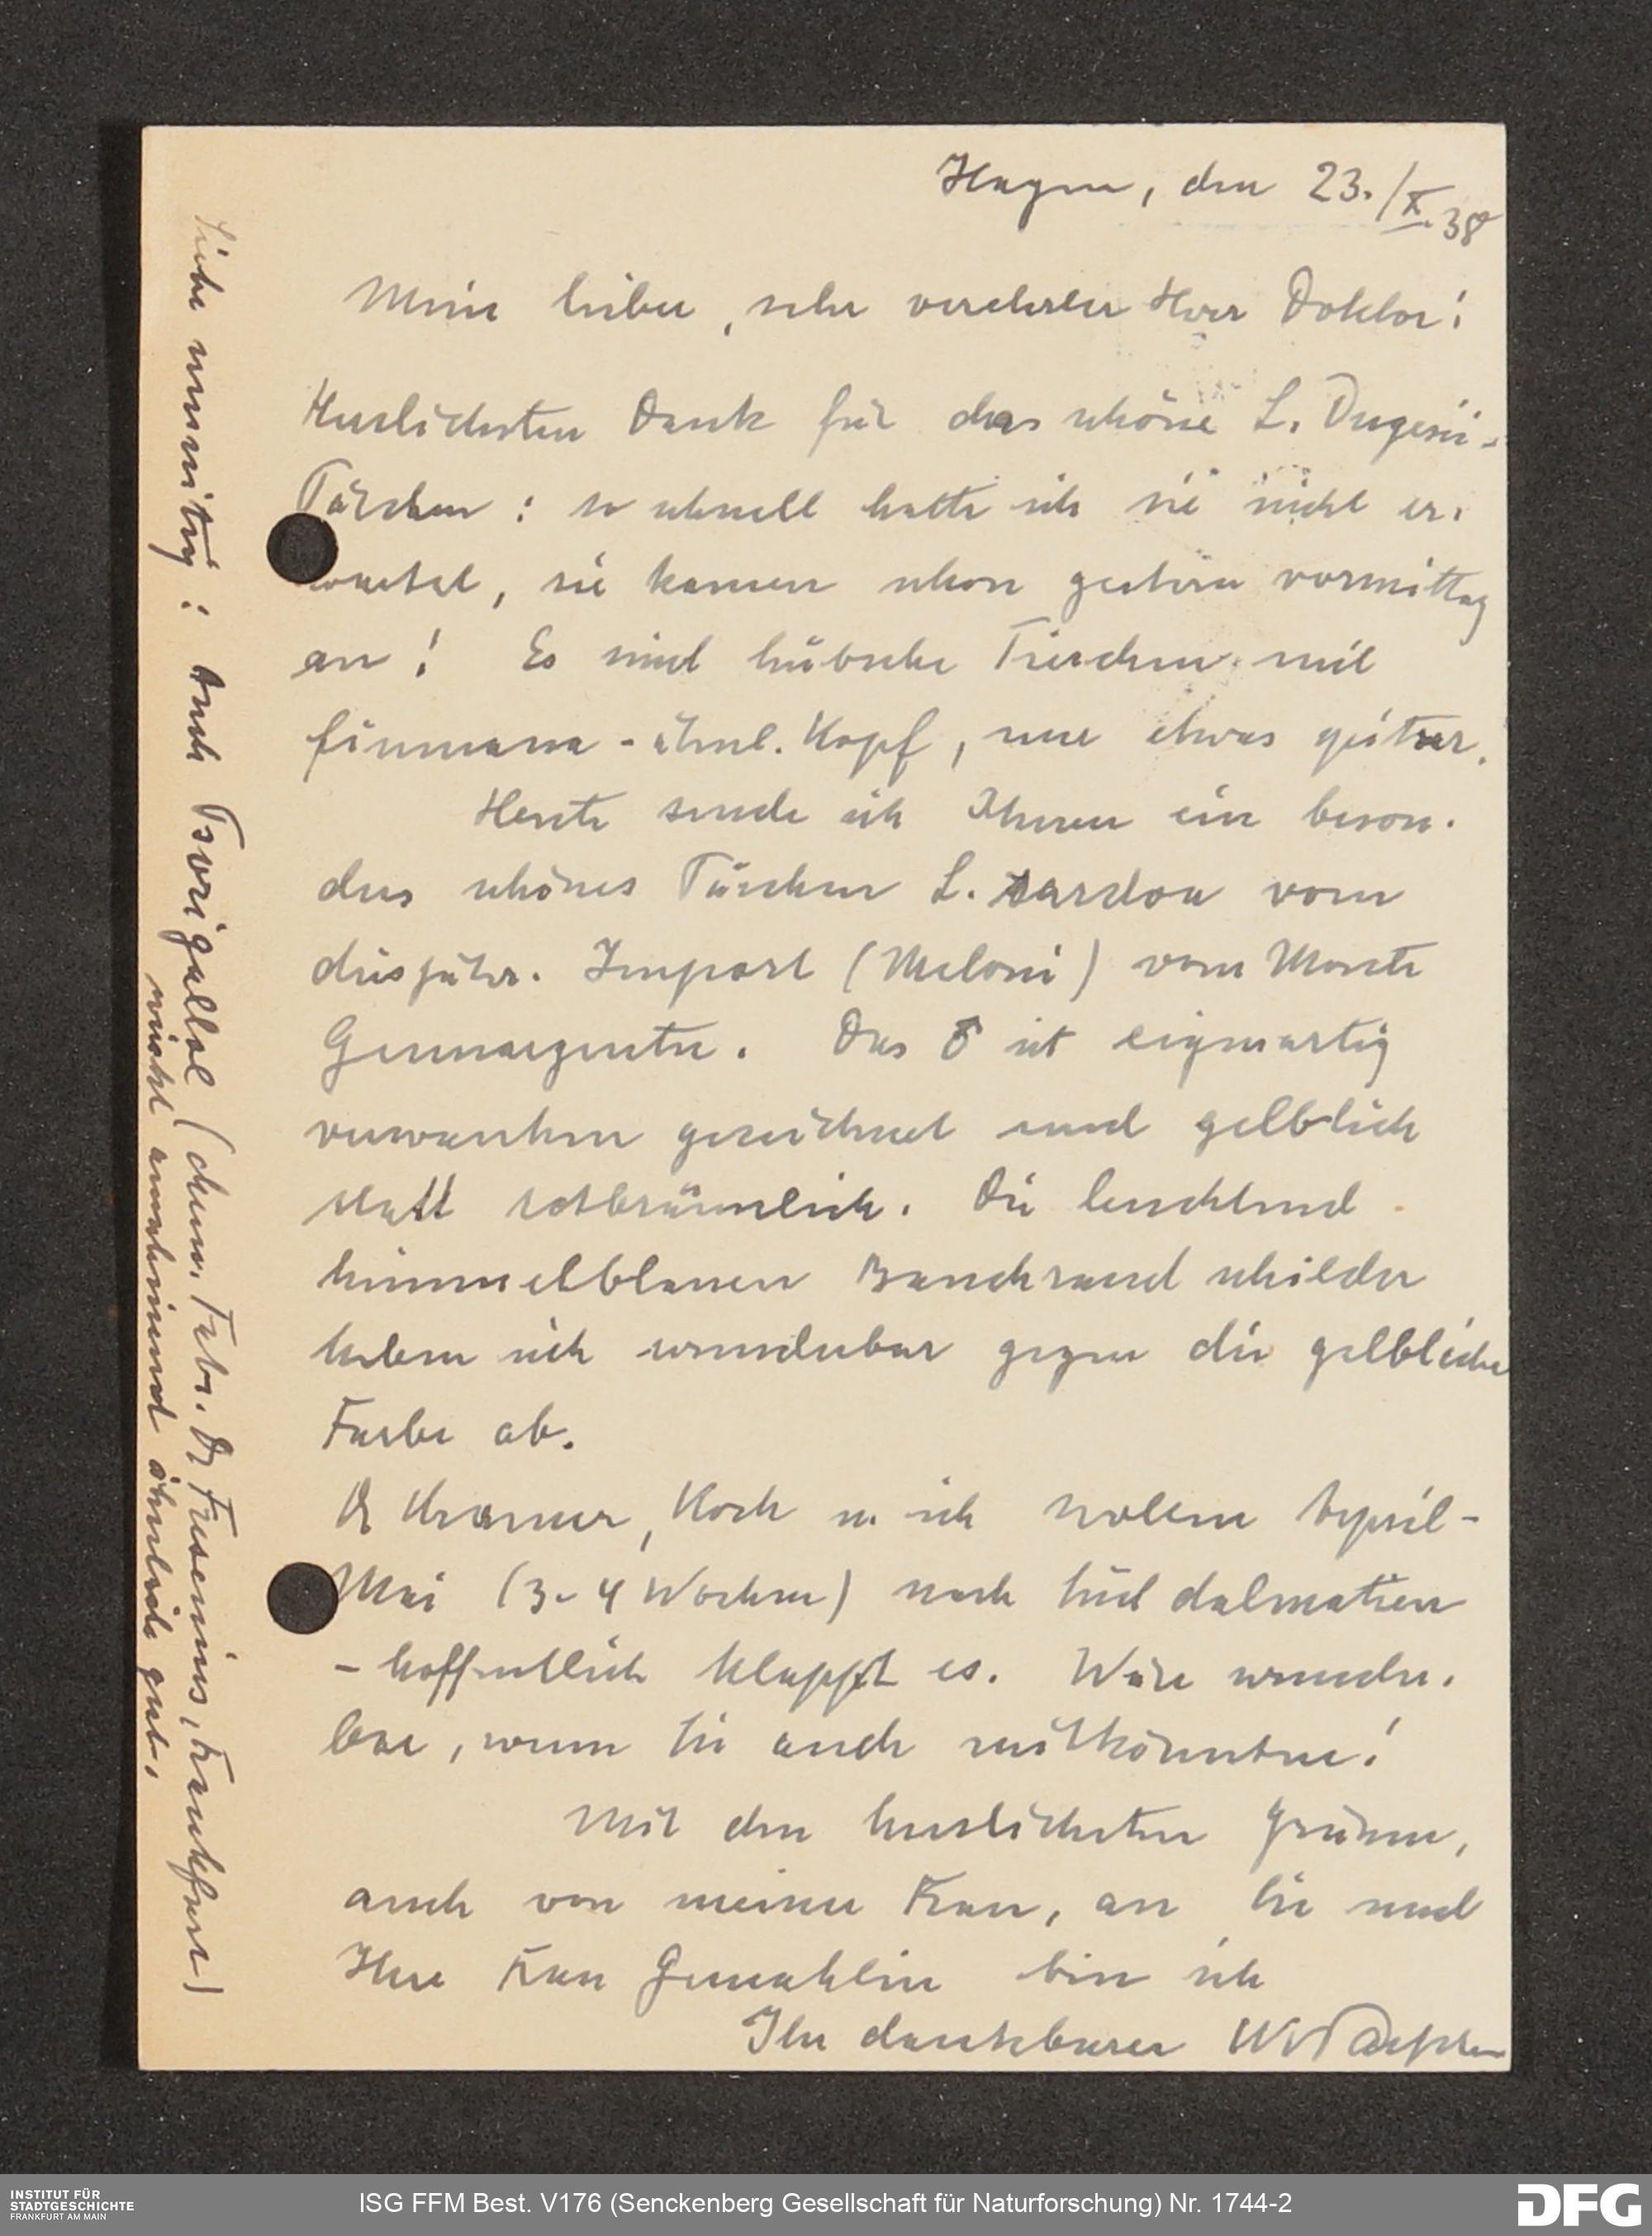 Hagen, den 23./X.38
Mein lieber, sehr verehrter Herr Doktor!
Herzlichsten Dank für das schöne L. Dugesii-
Pärchen: so schnell hatte ich sie nicht er-
wartet, sie kamen schon gestern vormittag
an! Es sind hübsche Tierchen mit
fiumana-ähnl. Kopf, nur etwas
Heute sende ich Ihnen ein beson-
ders schönes Pärchen L. sardoa vom
diesjähr. Import (Meloni) vom Monte
Gennargentu. Das ♂ ist eigenartig
verwaschen gezeichnet und gelblich
statt rotbräunlich. Die leuchtend
himmelblauen Bauchrandschilder
heben sich wunderbar gegen die gelbliche
Farbe ab.
Dr Kramer, Koch u. ich wollen April-
Mai (3-4 Wochen) nach Süddalmatien
- hoffentlich klappt es. Wäre wunder-
bar, wenn Sie auch mitkönnten!
Mit den herzlichsten Grüssen,
auch von meiner Frau, an Sie und
Ihre Frau Gemahlin bin ich
Ihr dankbarer
Siehe umseitig: Auch Tsorigallol (chem. Fabr. Dr Fresenius, Frankfurt)
wirkt annähernd ähnlich gut.
ISG FFM Best. V176 (Senckenberg Gesellschaft für Naturforschung) Nr. 1744-2
INSTITUT FÜR
STADTGESCHICHTE
FRANKFURT AM MAIN
DFG